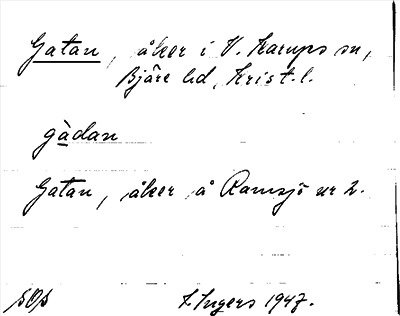 Gatan, åker i V. Karups sn,
Bjäre hd, Krist.l.
gàdan
Gatan, åker å Ramsjö nr 2.
SOS F. Ingers 1947.